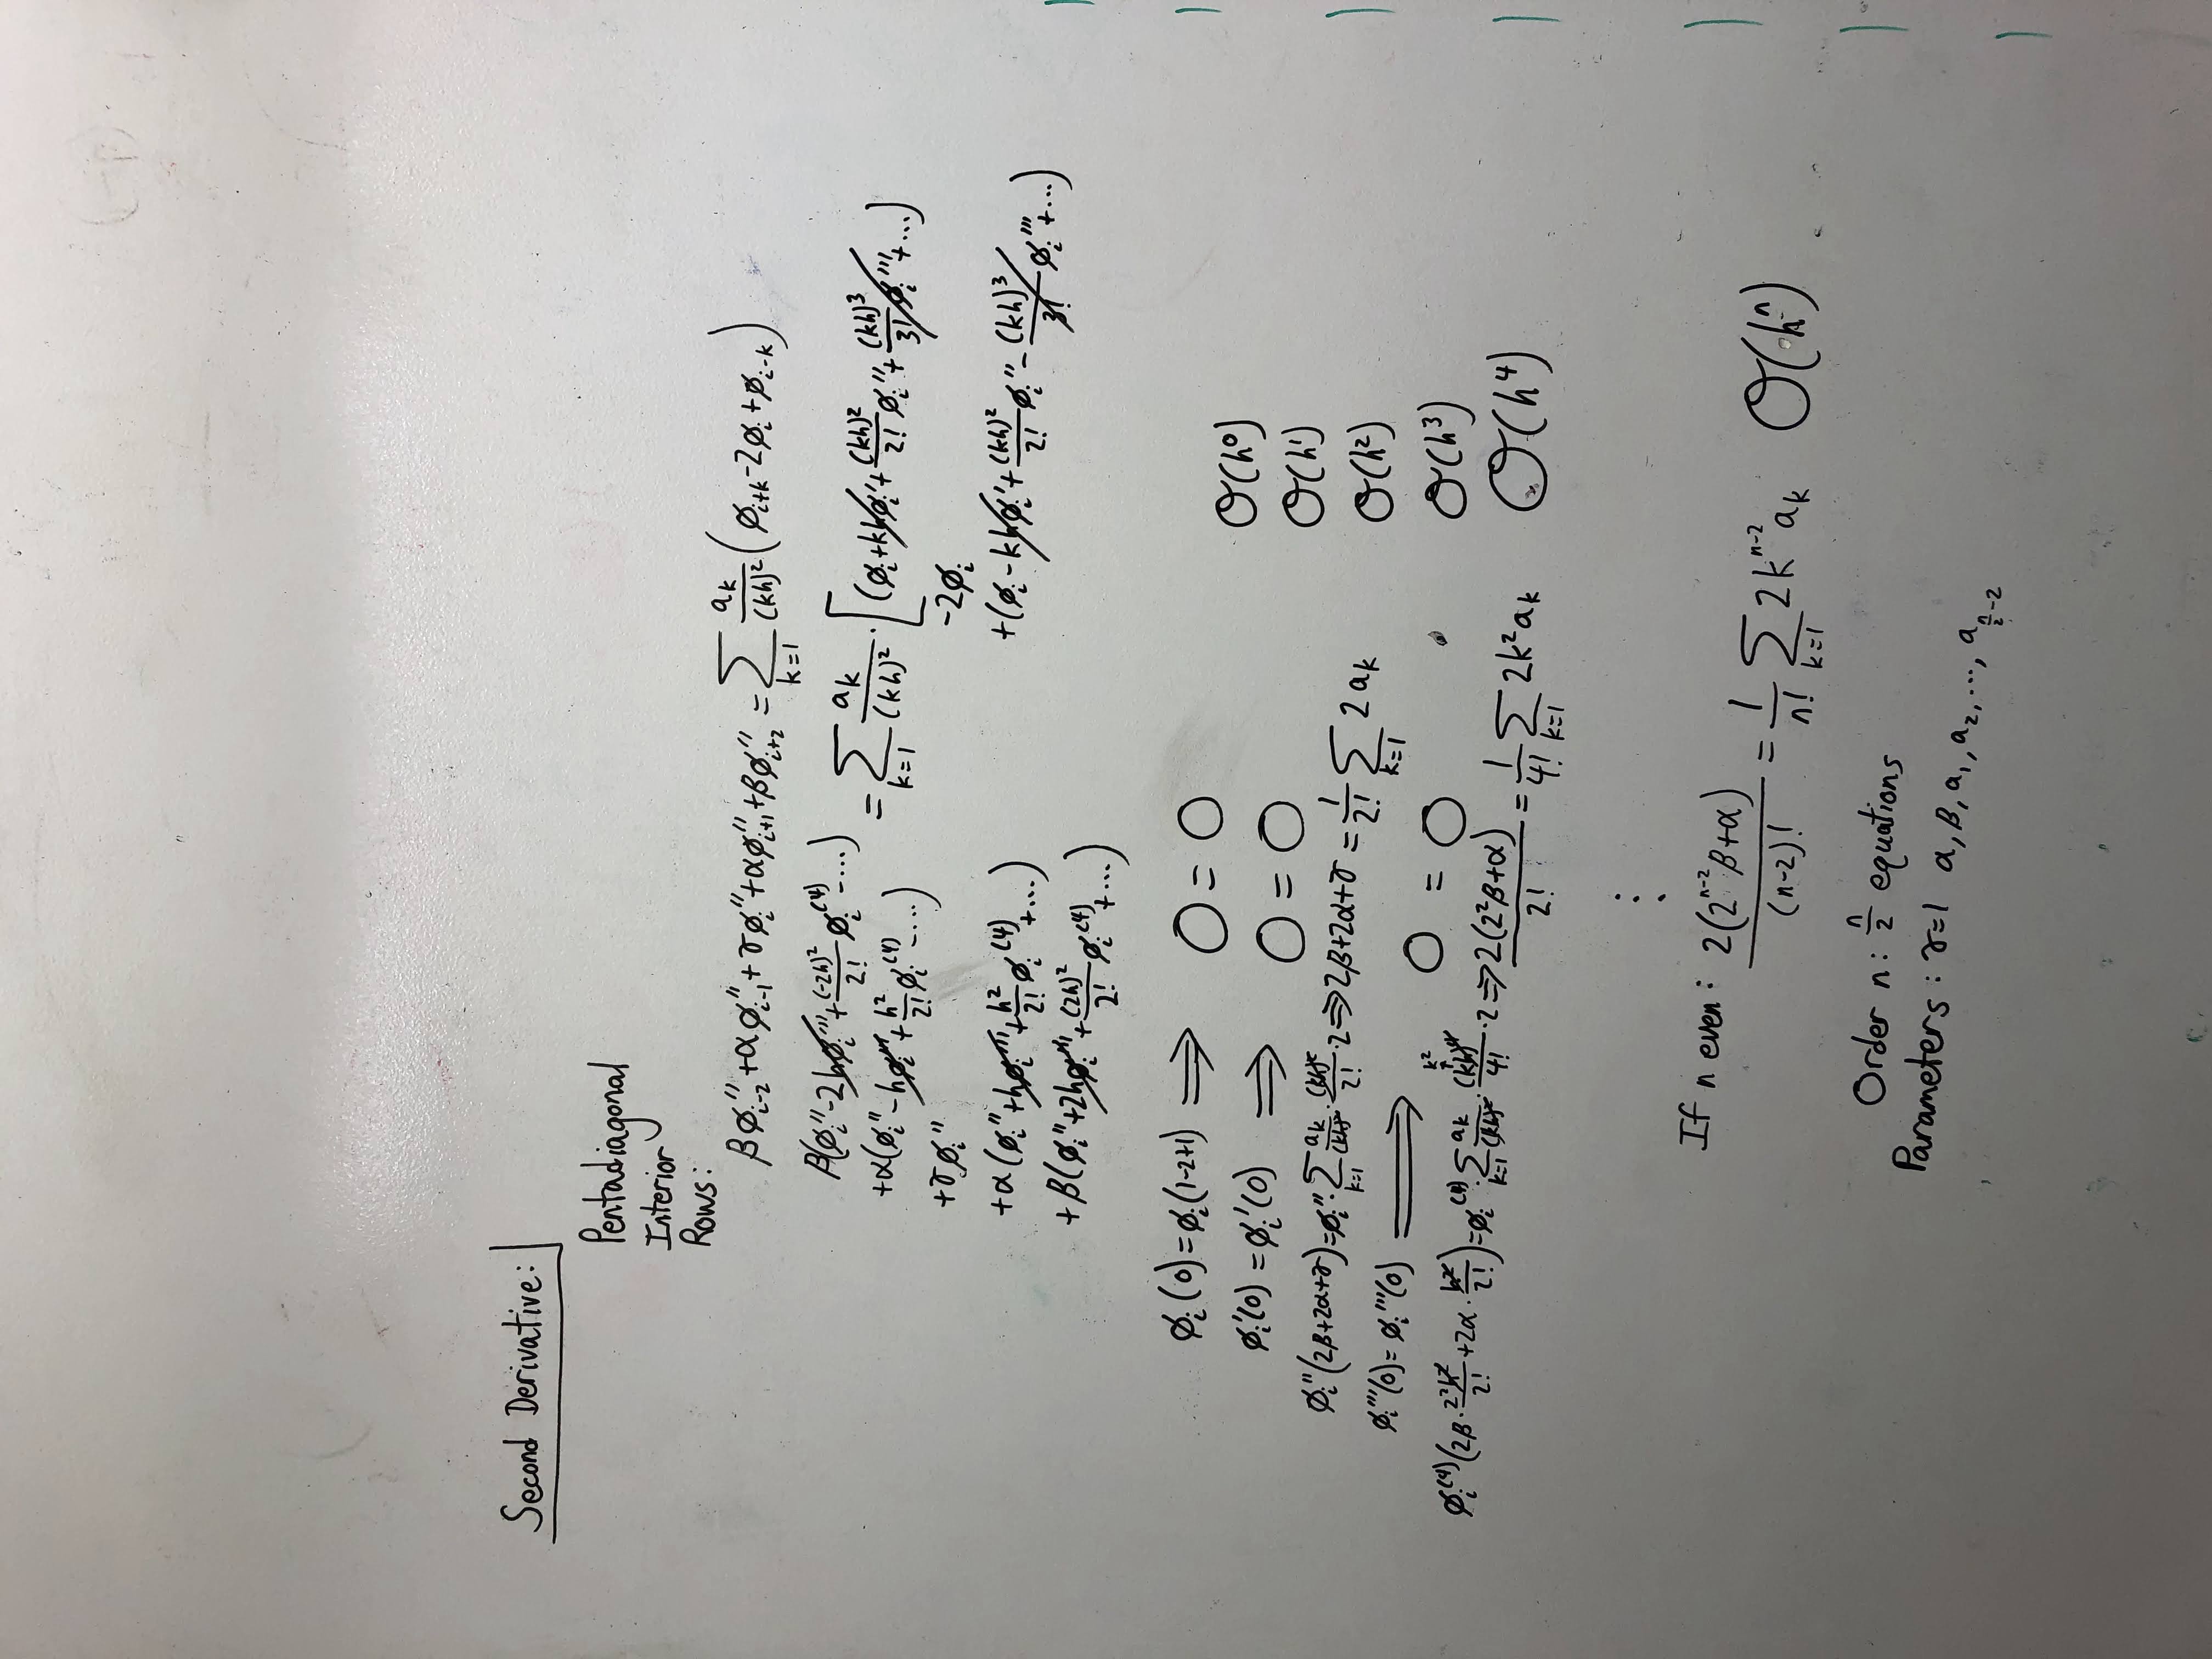 Second Derivative:
Pentadiagonal
Interior
Rows:
βϕ''ᵢ₋₂ + αϕ''ᵢ₋₁ + γϕᵢ'' + αϕ''ᵢ₊₁ + βϕ''ᵢ₊₂ = ∑_{k=1} a_k/(kh)² (ϕ_{i+k} - 2ϕᵢ + ϕ_{i-k})
β(ϕᵢ'' - 2hϕᵢ''' + (-2h)²/2! ϕᵢ⁽⁴⁾ - ...)
+α(ϕᵢ'' - hϕᵢ''' + h²/2! ϕᵢ⁽⁴⁾ - ...)
+γϕᵢ''
+α(ϕᵢ'' + hϕᵢ''' + h²/2! ϕᵢ⁽⁴⁾ + ...)
+β(ϕᵢ'' + 2hϕᵢ''' + (2h)²/2! ϕᵢ⁽⁴⁾ + ...)
= ∑_{k=1} a_k/(kh)² · [(ϕᵢ + khϕᵢ' + (kh)²/2! ϕᵢ'' + (kh)³/3! ϕᵢ''' + ...)
-2ϕᵢ
+(ϕᵢ - khϕᵢ' + (kh)²/2! ϕᵢ'' - (kh)³/3! ϕᵢ''' + ...)
ϕᵢ(0) = ϕᵢ(1-2+1) ⟹ 0 = 0 O(h⁰)
ϕᵢ'(0) = ϕᵢ'(0) ⟹ 0 = 0 O(h¹)
ϕᵢ''(2β+2α+γ) = ϕᵢ'' · ∑_{k=1} a_k/(kh)² · (kh)²/2! · 2 ⟹ 2β+2α+γ = 1/2! ∑_{k=1} 2a_k O(h²)
ϕᵢ'''(0) = ϕᵢ'''(0) ⟹ 0 = 0 O(h³)
k²
↑
ϕᵢ⁽⁴⁾(2β · 2²h²/2! + 2α · h²/2!) = ϕᵢ⁽⁴⁾ · ∑_{k=1} a_k/(kh)² · (kh)⁴/4! · 2 ⟹ 2(2²β+α)/2! = 1/4! ∑_{k=1} 2k²a_k O(h⁴)
⋮
If n even: 2(2ⁿ⁻²β+α)/(n-2)! = 1/n! ∑_{k=1} 2kⁿ⁻²a_k O(hⁿ)
Order n: n/2 equations
Parameters: γ=1 α, β, a₁, a₂, ..., a_{n/2-2}